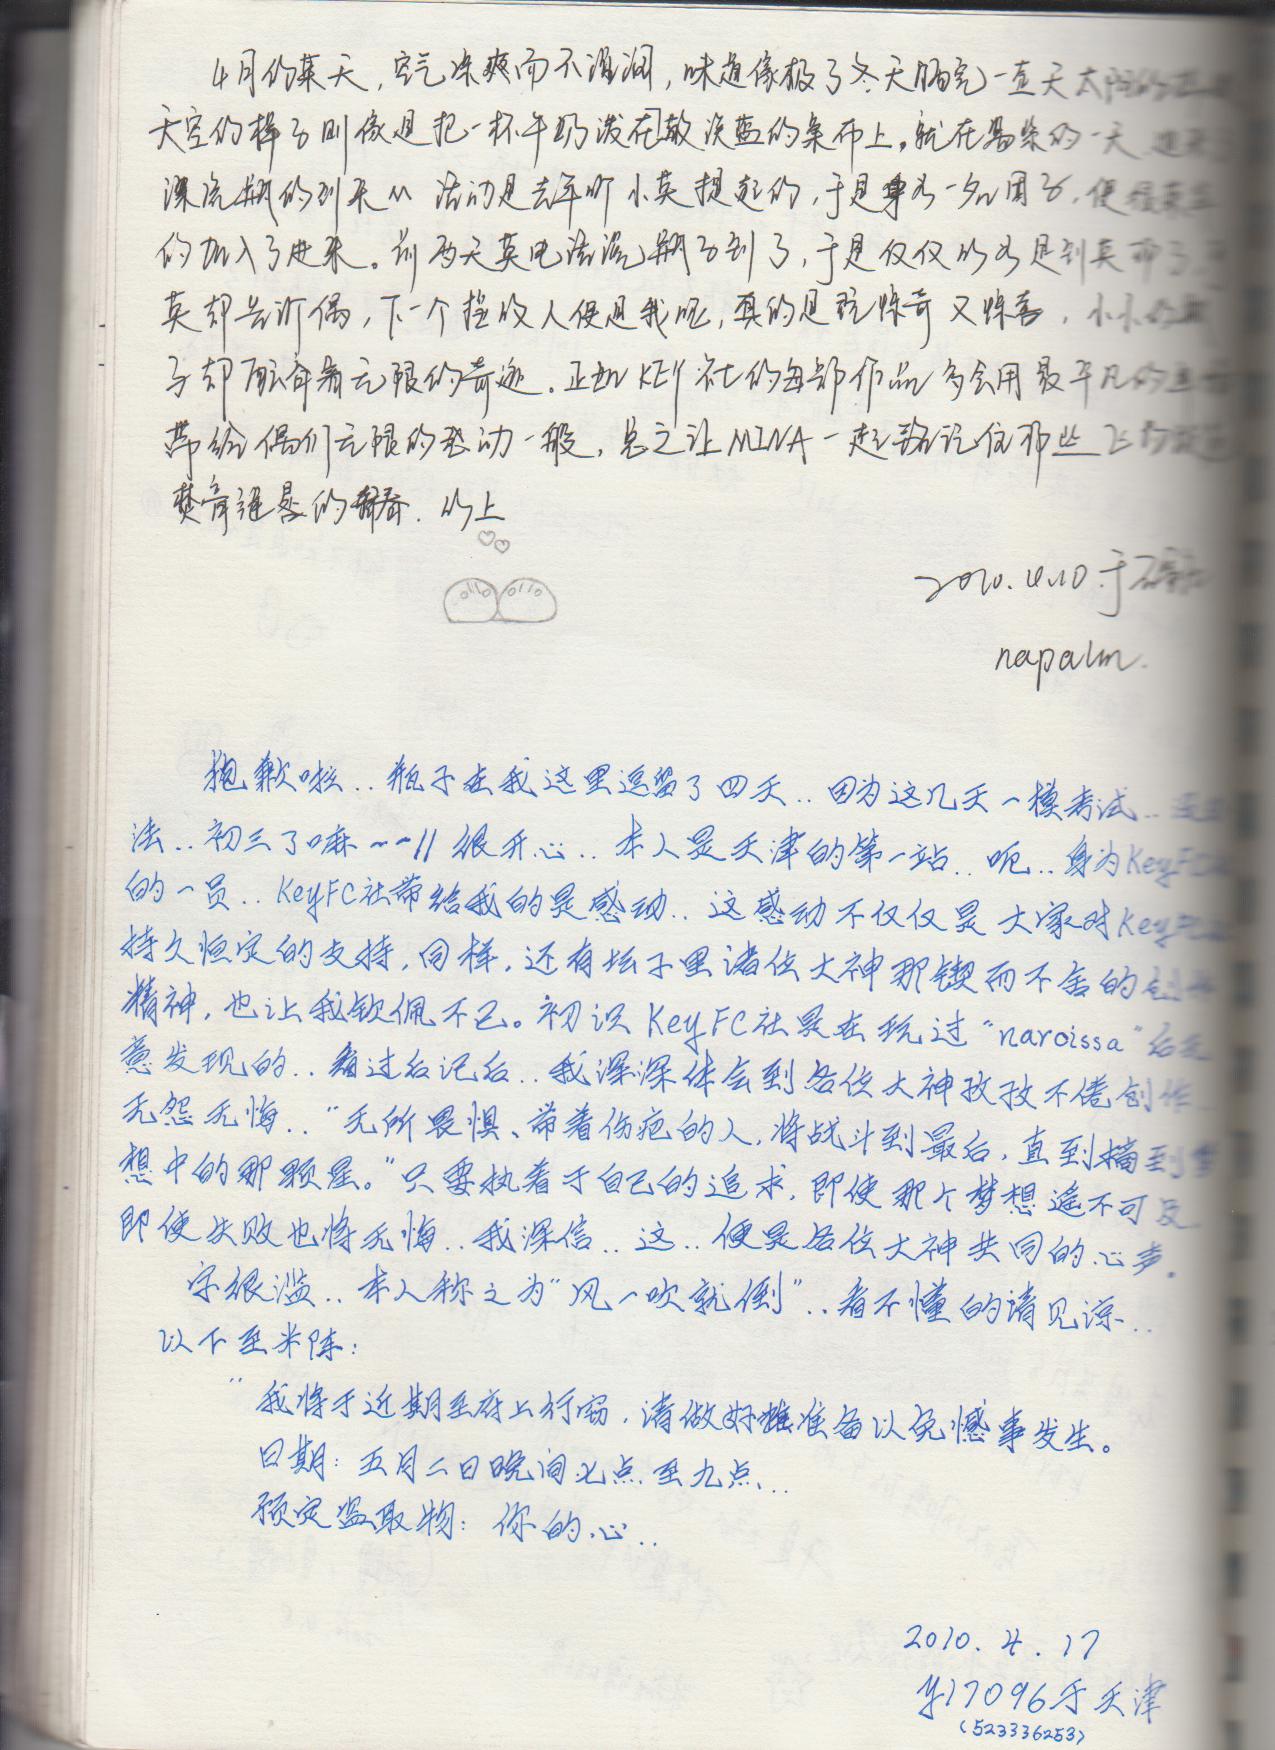 4月的某天，空气凉爽而不湿润，味道像极了冬天晒完一直天太阳的
天空的样子则像是把一杯牛奶泼在淡蓝的桌布上。就在的一天
漂流瓶的到来 活动是去年听小英提起的，于是身为一名团子，便很荣幸
的加入了进来。前两天英电话流瓶子到了，于是仅仅以为是到英那了，
英却告诉偶，下一个接收人便是我呢，真的是既惊奇又惊喜，小小的瓶
子却蕴着无限的奇迹。正如KEY社的每部作品多会用最平凡的
带给偶们无限的感动一般，总之让MINA一起铭记住那些
的青春．以上
2010.4.10．于
napalm．
抱歉啦．．瓶子在我这里逗留了四天．．因为这几天一模考试．．没
法．．初三了嘛~~11 很开心．．本人是天津的第一站．．呃．．身为KeyFC
的一员．．KeyFC社带给我的是感动．．这感动不仅仅是大家对KeyFC
持久恒定的支持，同样，还有坛子里诸位大神那锲而不舍的创作
精神，也让我钦佩不已。初识KeyFC社是在玩过“narcissa”后无
意发现的．．看过后记后．．我深深体会到各位大神孜孜不倦创作
无怨无悔．．“无所畏惧、带着伤疤的人，将战斗到最后，直到摘到梦
想中的那颗星。”只要执着于自己的追求，即使那个梦想遥不可及
即使失败也将无悔．．我深信．．这．．便是各位大神共同的心声。
字很滥．．本人称之为“风一吹就倒”．．看不懂的请见谅．．
以下至米阵：
“我将于近期至府上行窃，请做好准备以免憾事发生。
日期：五月二日晚间七点至九点．．
预定盗取物：你的心．．
2010．4．17
y17096于天津
（523336253）